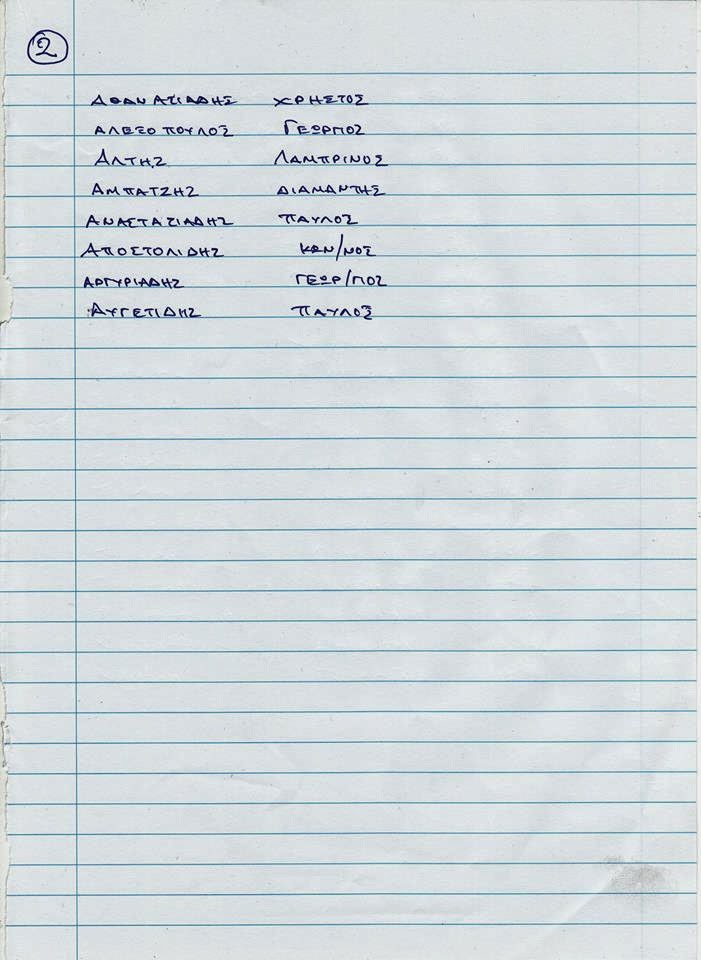 2
ΑΘΑΝΑΣΙΑΔΗΣ ΧΡΗΣΤΟΣ
ΑΛΕΞΟΠΟΥΛΟΣ ΓΕΩΡΓΙΟΣ
ΑΛΤΗΣ ΛΑΜΠΡΙΝΟΣ
ΑΜΠΑΤΖΗΣ ΔΙΑΜΑΝΤΗΣ
ΑΝΑΣΤΑΣΙΑΔΗΣ ΠΑΥΛΟΣ
ΑΠΟΣΤΟΛΙΔΗΣ ΚΩΝ/ΝΟΣ
ΑΡΓΥΡΙΑΔΗΣ ΓΕΩΡ/ΓΙΟΣ
ΑΥΓΕΤΙΔΗΣ ΠΑΥΛΟΣ